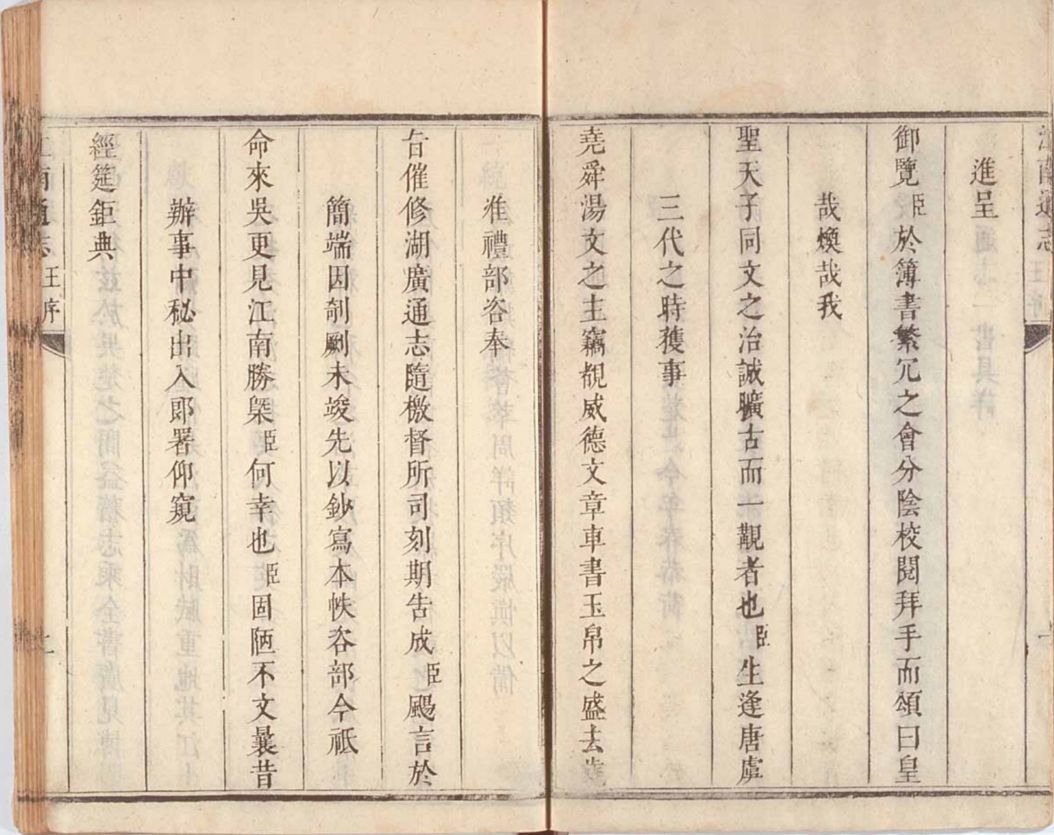 進呈
御覽臣於簿書繁冗之會分陰校閱拜手而頌曰皇
哉煥哉我
聖天子同文之治誠曠古而一觀者也臣生逢唐虞
三代之時獲事
堯舜湯文之主竊覩威德文章車書玉帛之盛去歲
准禮部咨奉
旨催修湖廣通志隨檄督所司刻期告成臣颺言於
簡端因剞劂未竣先以鈔寫本帙咨部今祗
命來吳更見江南勝槩臣何幸也臣固陋不文曩昔
辦事中秘出入郎署仰窺
經筵鉅典
江南通志 王序